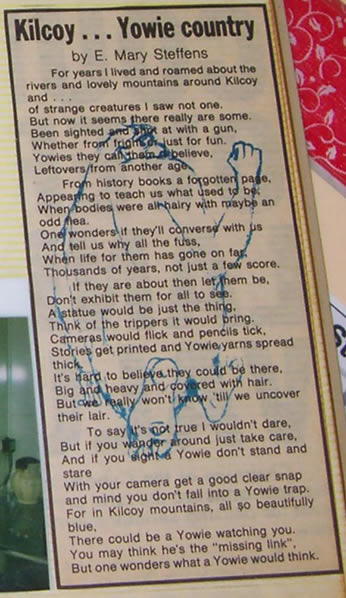 Kilcoy . . . Yowie country
by E. Mary Steffens
For years I lived and roamed about the
rivers and lovely mountains around Kilcoy
and . . .
of strange creatures I saw not one.
But now it seems there really are some.
Been sighted and shot at with a gun,
Whether from fright or just for fun.
Yowies they call them a believe,
Leftovers from another age.
From history books a forgotten page,
Appearing to teach us what used to be,
When bodies were all hairy with maybe an
odd flea.
One wonders if they'll converse with us
And tell us why all the fuss,
When life for them has gone on far
Thousands of years, not just a few score.
If they are about then let them be,
Don't exhibit them for all to see.
A statue would be just the thing,
Think of the trippers it would bring.
Cameras would flick and pencils tick,
Stories get printed and Yowie yarns spread
thick.
It's hard to believe they could be there,
Big and heavy and covered with hair.
But we really won't know 'till we uncover
their lair.
To say it's not true I wouldn't dare,
But if you wander around just take care,
And if you sight a Yowie don't stand and
stare
With your camera get a good clear snap
and mind you don't fall into a Yowie trap.
For in Kilcoy mountains, all so beautifully
blue,
There could be a Yowie watching you.
You may think he's the "missing link",
But one wonders what a Yowie would think.